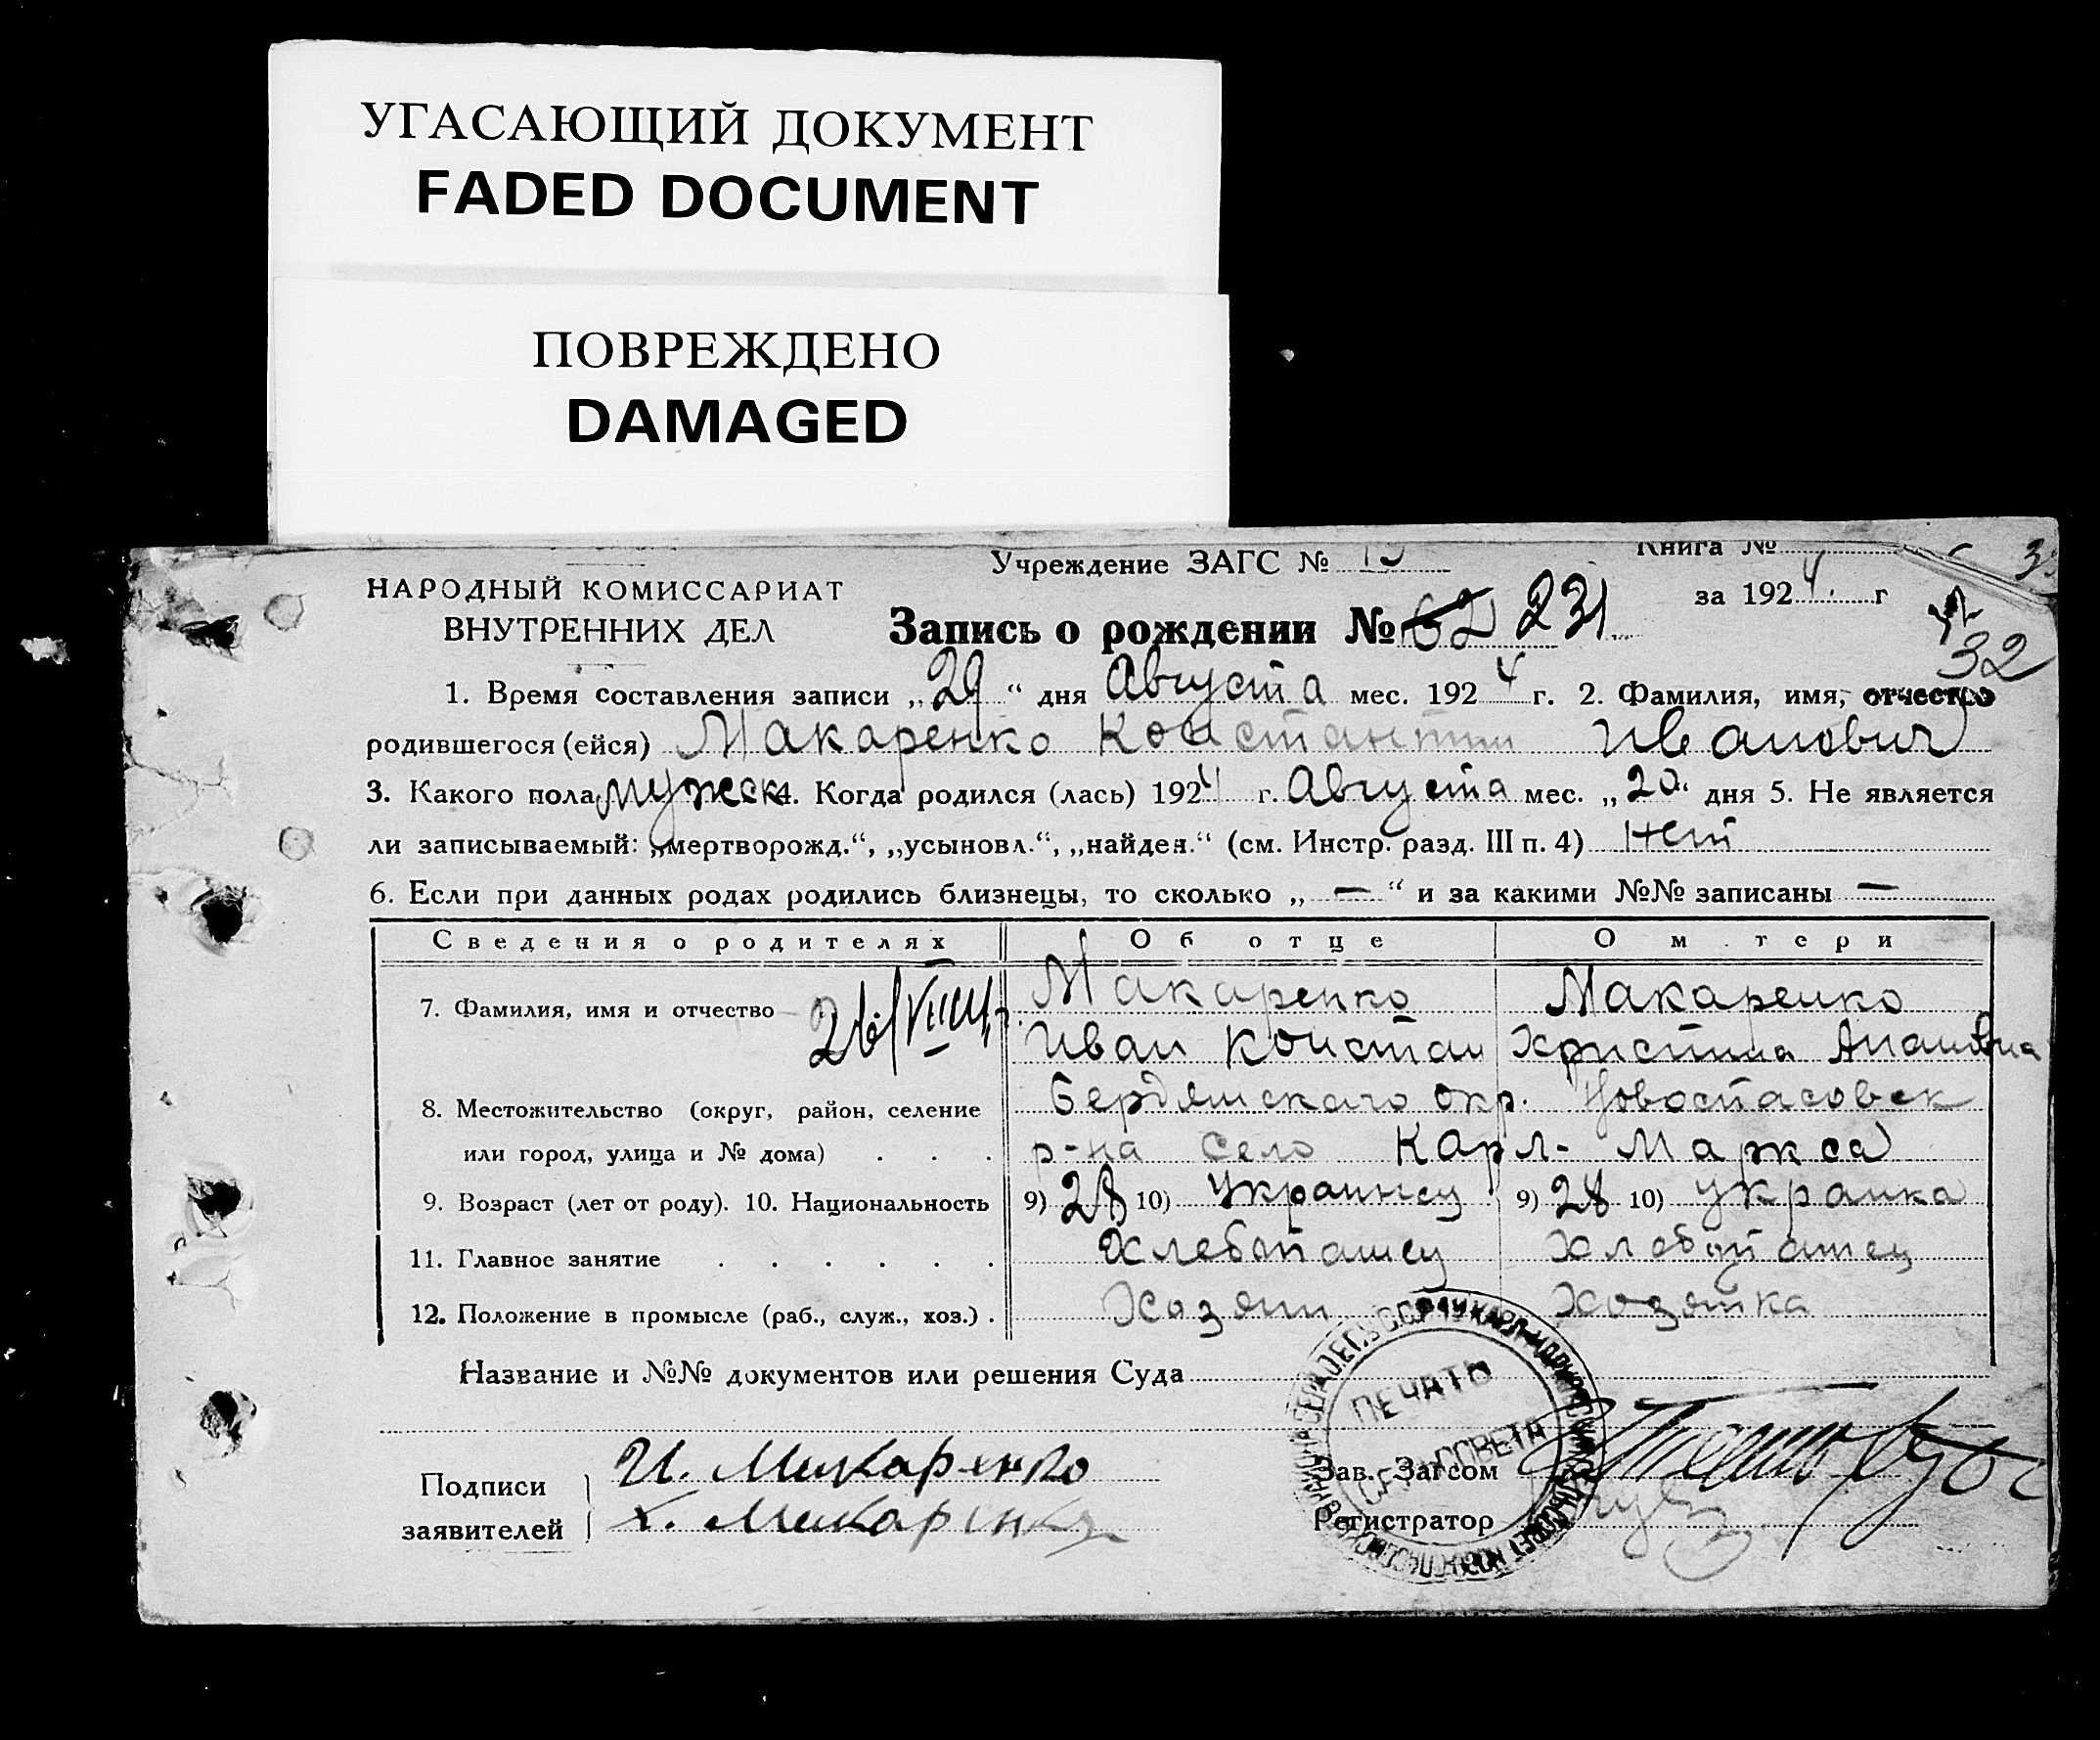 УГАСАЮЩИЙ ДОКУМЕНТ
FADED DOCUMENT
ПОВРЕЖДЕНО
DAMAGED
Учреждение ЗАГС №
Книга №
НАРОДНЫЙ КОМИССАРИАТ
ВНУТРЕННИХ ДЕЛ
за 1924 г
32
Запись о рождении № 62 231
1. Время составления записи „29“ дня Августа мес. 1924 г. 2. Фамилия, имя, отчество
родившегося (ейся) Макаренко Константин Иванович
3. Какого пола мужск 4. Когда родился (лась) 1924 г. Августа мес. „20“ дня 5. Не является
ли записываемый: „мертворожд.“, „усыновл.“, „найден.“ (см. Инстр. разд. III п. 4) Нет
6. Если при данных родах родились близнецы, то сколько „ — “ и за какими №№ записаны —
Сведения о родителях Об отце О м тери
7. Фамилия, имя и отчество Макаренко Макаренко
Иван Констан Христина
8. Местожительство (округ, район, селение Бердянскаго окр. Новоспасовск
или город, улица и № дома) . . . р-на село Карл-Маркса
9. Возраст (лет от роду). 10. Национальность 9) 28 10) Украинец 9) 28 10) Украинка
11. Главное занятие . . . . . . Хлебопашец хлебопашец
12. Положение в промысле (раб., служ., хоз.) . Хозяин хозяйка
Название и №№ документов или решения Суда
ПЕЧАТЬ
СЕЛ. СОВЕТА
Подписи И. Макаренко Зав. Загсом
заявителей Х. Макаренко Регистратор